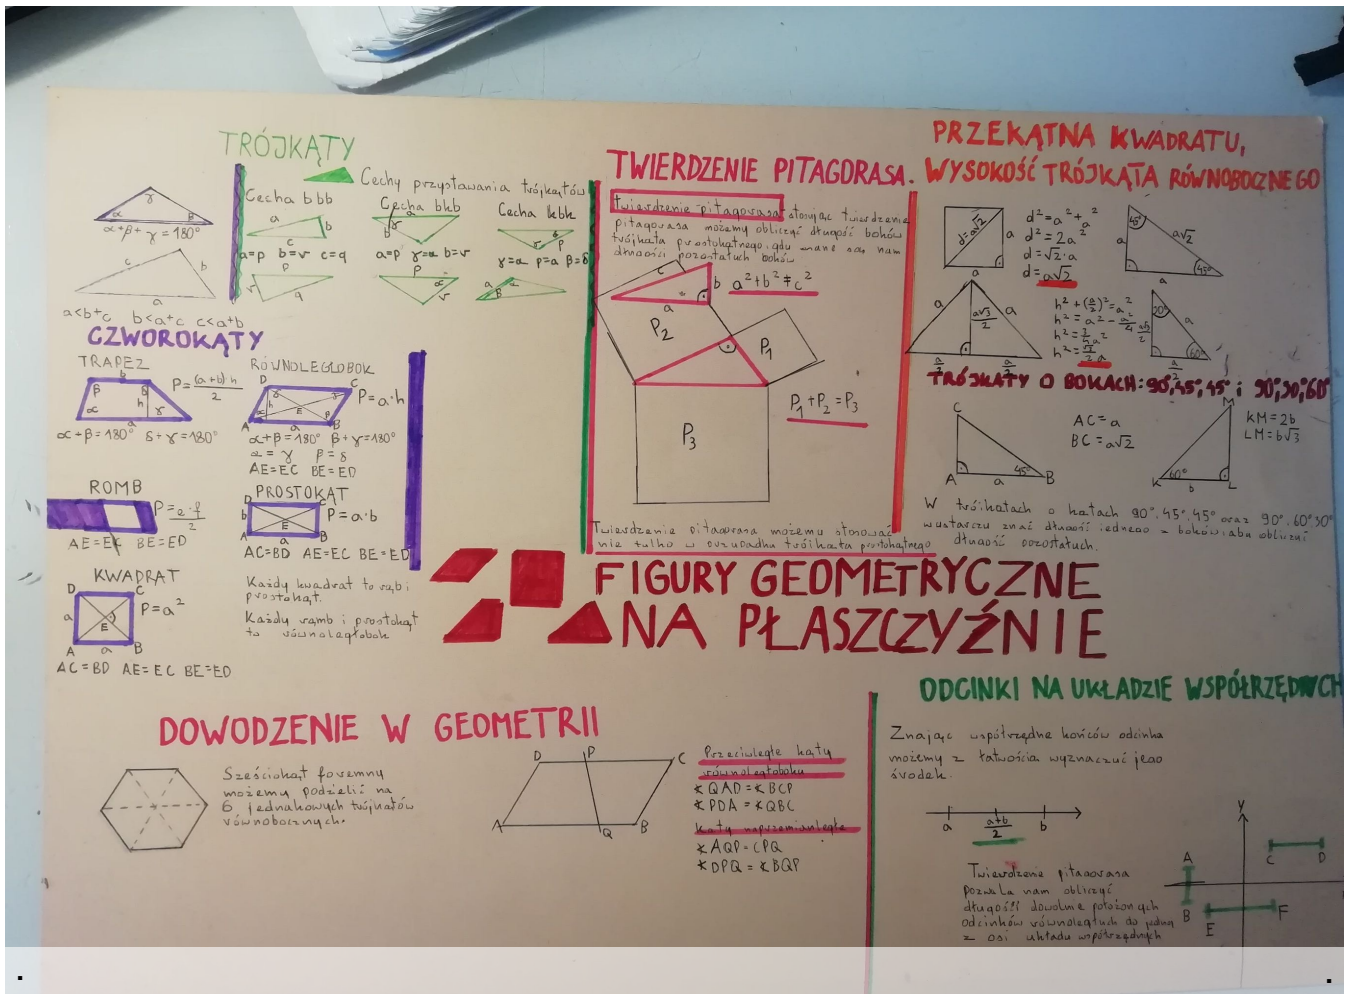 TRÓJKĄTY
α β γ
α+β+γ=180°
c b
a
a<b+c b<a+c c<a+b
Cechy przystawania trójkątów
Cecha bbb
a b
c
a=p b=r c=q
r p q
Cecha bkb
a b γ
a=p γ=α b=r
p α r
Cecha kbk
γ=α p=a β=δ
CZWOROKĄTY
TRAPEZ
b
β δ
h
α γ
a
P=(a+b)·h
2
α+β=180° δ+γ=180°
RÓWNOLEGŁOBOK
D C
h
E
A a B
P=a·h
α+β=180° β+γ=180°
α=γ β=δ
AE=EC BE=ED
ROMB
P=e·f
2
AE=EC BE=ED
PROSTOKĄT
D C
b E
A a B
P=a·b
AC=BD AE=EC BE=ED
KWADRAT
D C
a E
A a B
P=a²
AC=BD AE=EC BE=ED
Każdy kwadrat to romb i
prostokąt.
Każdy romb i prostokąt
to równoległobok
TWIERDZENIE PITAGORASA.
Twierdzenie pitagorasa stosując twierdzenie
pitagorasa możemy obliczyć długość boków
trójkąta prostokątnego, gdy znane są nam
długości pozostałych boków
c
b
a
a²+b²=c²
P2
P1
P3
P1+P2=P3
Twierdzenie pitagorasa możemy stosować
nie tylko w przypadku trójkąta prostokątnego
PRZEKĄTNA KWADRATU,
WYSOKOŚĆ TRÓJKĄTA RÓWNOBOCZNEGO
d=a√2
a
a
d²=a²+a²
d²=2a²
d=√2·a
d=a√2
45°
a a√2
45°
a
a a
a√3
2
a a
2 2
h²+(a/2)²=a²
h²=a²-a²/4
30°
a
60°
a
2
TRÓJKĄTY O BOKACH: 90°,45°,45° i 90°,30°,60°
C
A a B
45°
AC=a
BC=a√2
M
60°
K b L
KM=2b
LM=b√3
W trójkątach o kątach 90°,45°,45° oraz 90°,60°,30°
wystarczy znać długość jednego z boków, aby obliczyć
długość pozostałych.
FIGURY GEOMETRYCZNE
NA PŁASZCZYŹNIE
DOWODZENIE W GEOMETRII
Sześciokąt foremny
możemy podzielić na
6 jednakowych trójkątów
równobocznych.
D P C
A Q B
Przeciwległe kąty
równoległoboku
∢QAD=∢BCP
∢PDA=∢QBC
kąty naprzemianległe
∢AQP=CPQ
∢DPQ=∢BQP
ODCINKI NA UKŁADZIE WSPÓŁRZĘDNYCH
Znając współrzędne końców odcinka
możemy z łatwością wyznaczyć jego
środek.
a a+b b
2
Twierdzenie pitagorasa
pozwala nam obliczyć
długości dowolnie położonych
odcinków równoległych do jednej
z osi układu współrzędnych
Y
A C D
B
E F